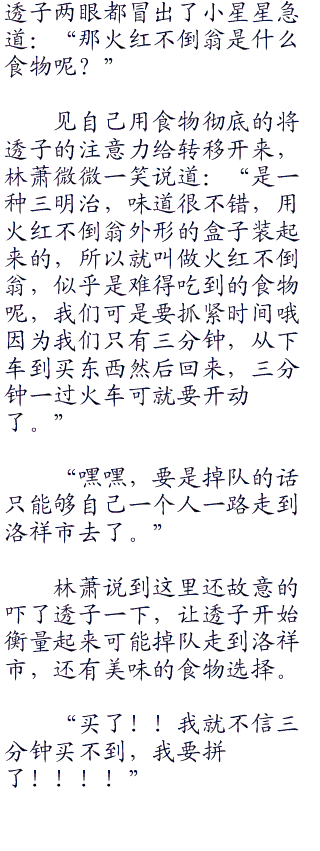 透子两眼都冒出了小星星急
道：“那火红不倒翁是什么
食物呢？”
见自己用食物彻底的将
透子的注意力给转移开来，
林萧微微一笑说道：“是一
种三明治，味道很不错，用
火红不倒翁外形的盒子装起
来的，所以就叫做火红不倒
翁，似乎是难得吃到的食物
呢，我们可是要抓紧时间哦
因为我们只有三分钟，从下
车到买东西然后回来，三分
钟一过火车可就要开动
了。”
“嘿嘿，要是掉队的话
只能够自己一个人一路走到
洛祥市去了。”
林萧说到这里还故意的
吓了透子一下，让透子开始
衡量起来可能掉队走到洛祥
市，还有美味的食物选择。
“买了！！我就不信三
分钟买不到，我要拼
了！！！！”